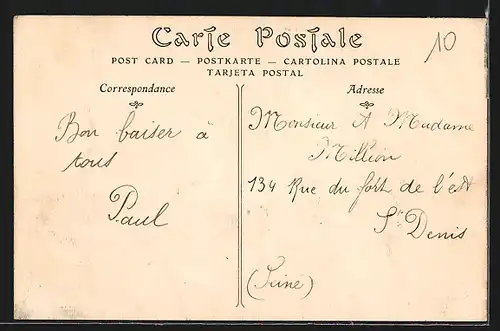 Carte Postale
POST CARD — POSTKARTE — CARTOLINA POSTALE
TARJETA POSTAL
10
Correspondance
Bon baiser à
tous
Paul
Adresse
Monsieur & Madame
Million
134 Rue du fort de l'est
St Denis
(Seine)